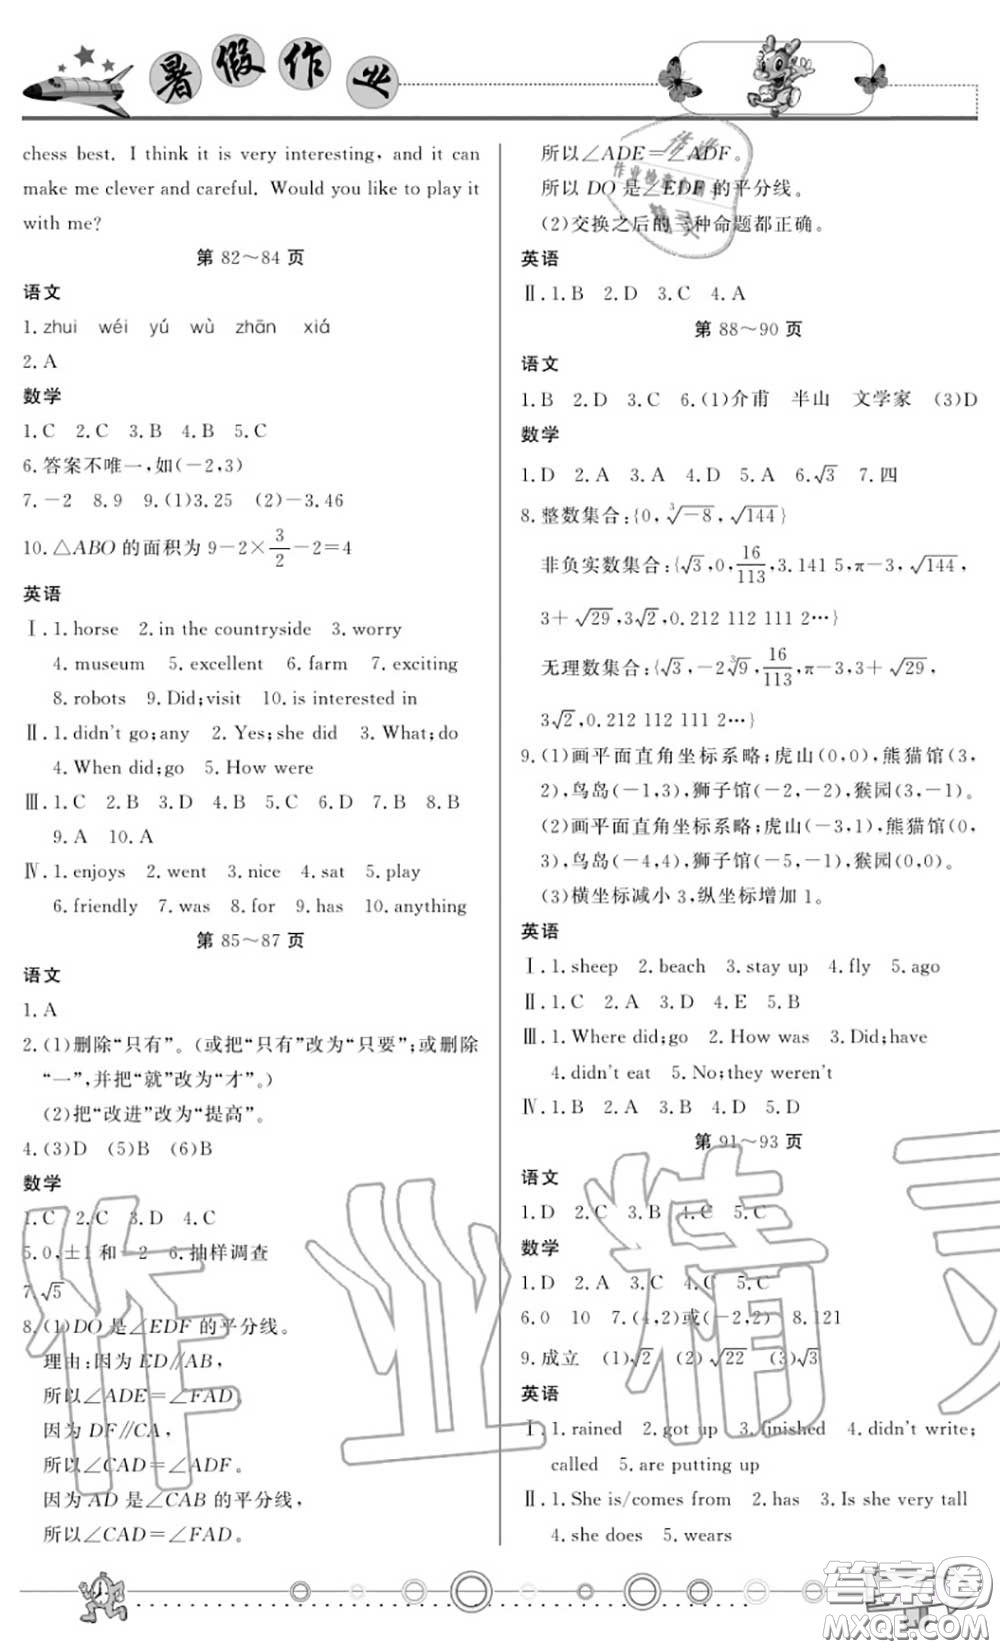 暑假作业
chess best. I think it is very interesting, and it can
make me clever and careful. Would you like to play it
with me?
第 82～84 页
语文
1. zhui wéi yú wù zhān xiá
2. A
数学
1. C 2. C 3. B 4. B 5. C
6. 答案不唯一,如(－2,3)
7. －2 8. 9 9. (1)3.25 (2)－3.46
10. △ABO 的面积为 9－2×3/2－2＝4
英语
Ⅰ. 1. horse 2. in the countryside 3. worry
4. museum 5. excellent 6. farm 7. exciting
8. robots 9. Did;visit 10. is interested in
Ⅱ. 1. didn't go;any 2. Yes;she did 3. What;do
4. When did;go 5. How were
Ⅲ. 1. C 2. B 3. D 4. B 5. C 6. D 7. B 8. B
9. A 10. A
Ⅳ. 1. enjoys 2. went 3. nice 4. sat 5. play
6. friendly 7. was 8. for 9. has 10. anything
第 85～87 页
语文
1. A
2. (1)删除“只有”。(或把“只有”改为“只要”;或删除
“一”,并把“就”改为“才”。)
(2)把“改进”改为“提高”。
4. (3)D (5)B (6)B
数学
1. C 2. C 3. D 4. C
5. 0,±1 和－2 6. 抽样调查
7. √5
8. (1)DO 是∠EDF 的平分线。
理由:因为 ED∥AB,
所以∠ADE＝∠FAD,
因为 DF∥CA,
所以∠CAD＝∠ADF。
因为 AD 是∠CAB 的平分线,
所以∠CAD＝∠FAD。
所以∠ADE＝∠ADF。
所以 DO 是∠EDF 的平分线。
(2)交换之后的三种命题都正确。
英语
Ⅱ. 1. B 2. D 3. C 4. A
第 88～90 页
语文
1. B 2. D 3. C 6. (1)介甫 半山 文学家 (3)D
数学
1. D 2. A 3. A 4. D 5. A 6. √3 7. 四
8. 整数集合:{0,∛－8,√144}
非负实数集合:{√3,0,16/113,3.141 5,π－3,√144,
3＋√29,3√2,0.212 112 111 2…}
无理数集合:{√3,－2∛9,16/113,π－3,3＋√29,
3√2,0.212 112 111 2…}
9. (1)画平面直角坐标系略;虎山(0,0),熊猫馆(3,
2),鸟岛(－1,3),狮子馆(－2,－2),猴园(3,－1)。
(2)画平面直角坐标系略;虎山(－3,1),熊猫馆(0,
3),鸟岛(－4,4),狮子馆(－5,－1),猴园(0,0)。
(3)横坐标减小 3,纵坐标增加 1。
英语
Ⅰ. 1. sheep 2. beach 3. stay up 4. fly 5. ago
Ⅱ. 1. C 2. A 3. D 4. E 5. B
Ⅲ. 1. Where did;go 2. How was 3. Did;have
4. didn't eat 5. No;they weren't
Ⅳ. 1. C 2. B 3. A 4. D 5. D
第 91～93 页
语文
1. D 2. D 3. B 4. C 5. C
数学
1. D 2. A 3. C 4. C 5. C
6. 0 10 7. (4,2)或(－2,2) 8. 121
9. 成立 (1)√2 (2)√22 (3)√3
英语
Ⅰ. 1. rained 2. got up 3. finished 4. didn't write;
called 5. are putting up
Ⅱ. 1. She is/comes from 2. has 3. Is she very tall
4. she does 5. wears
作业精灵
答案卷
MXQE.COM